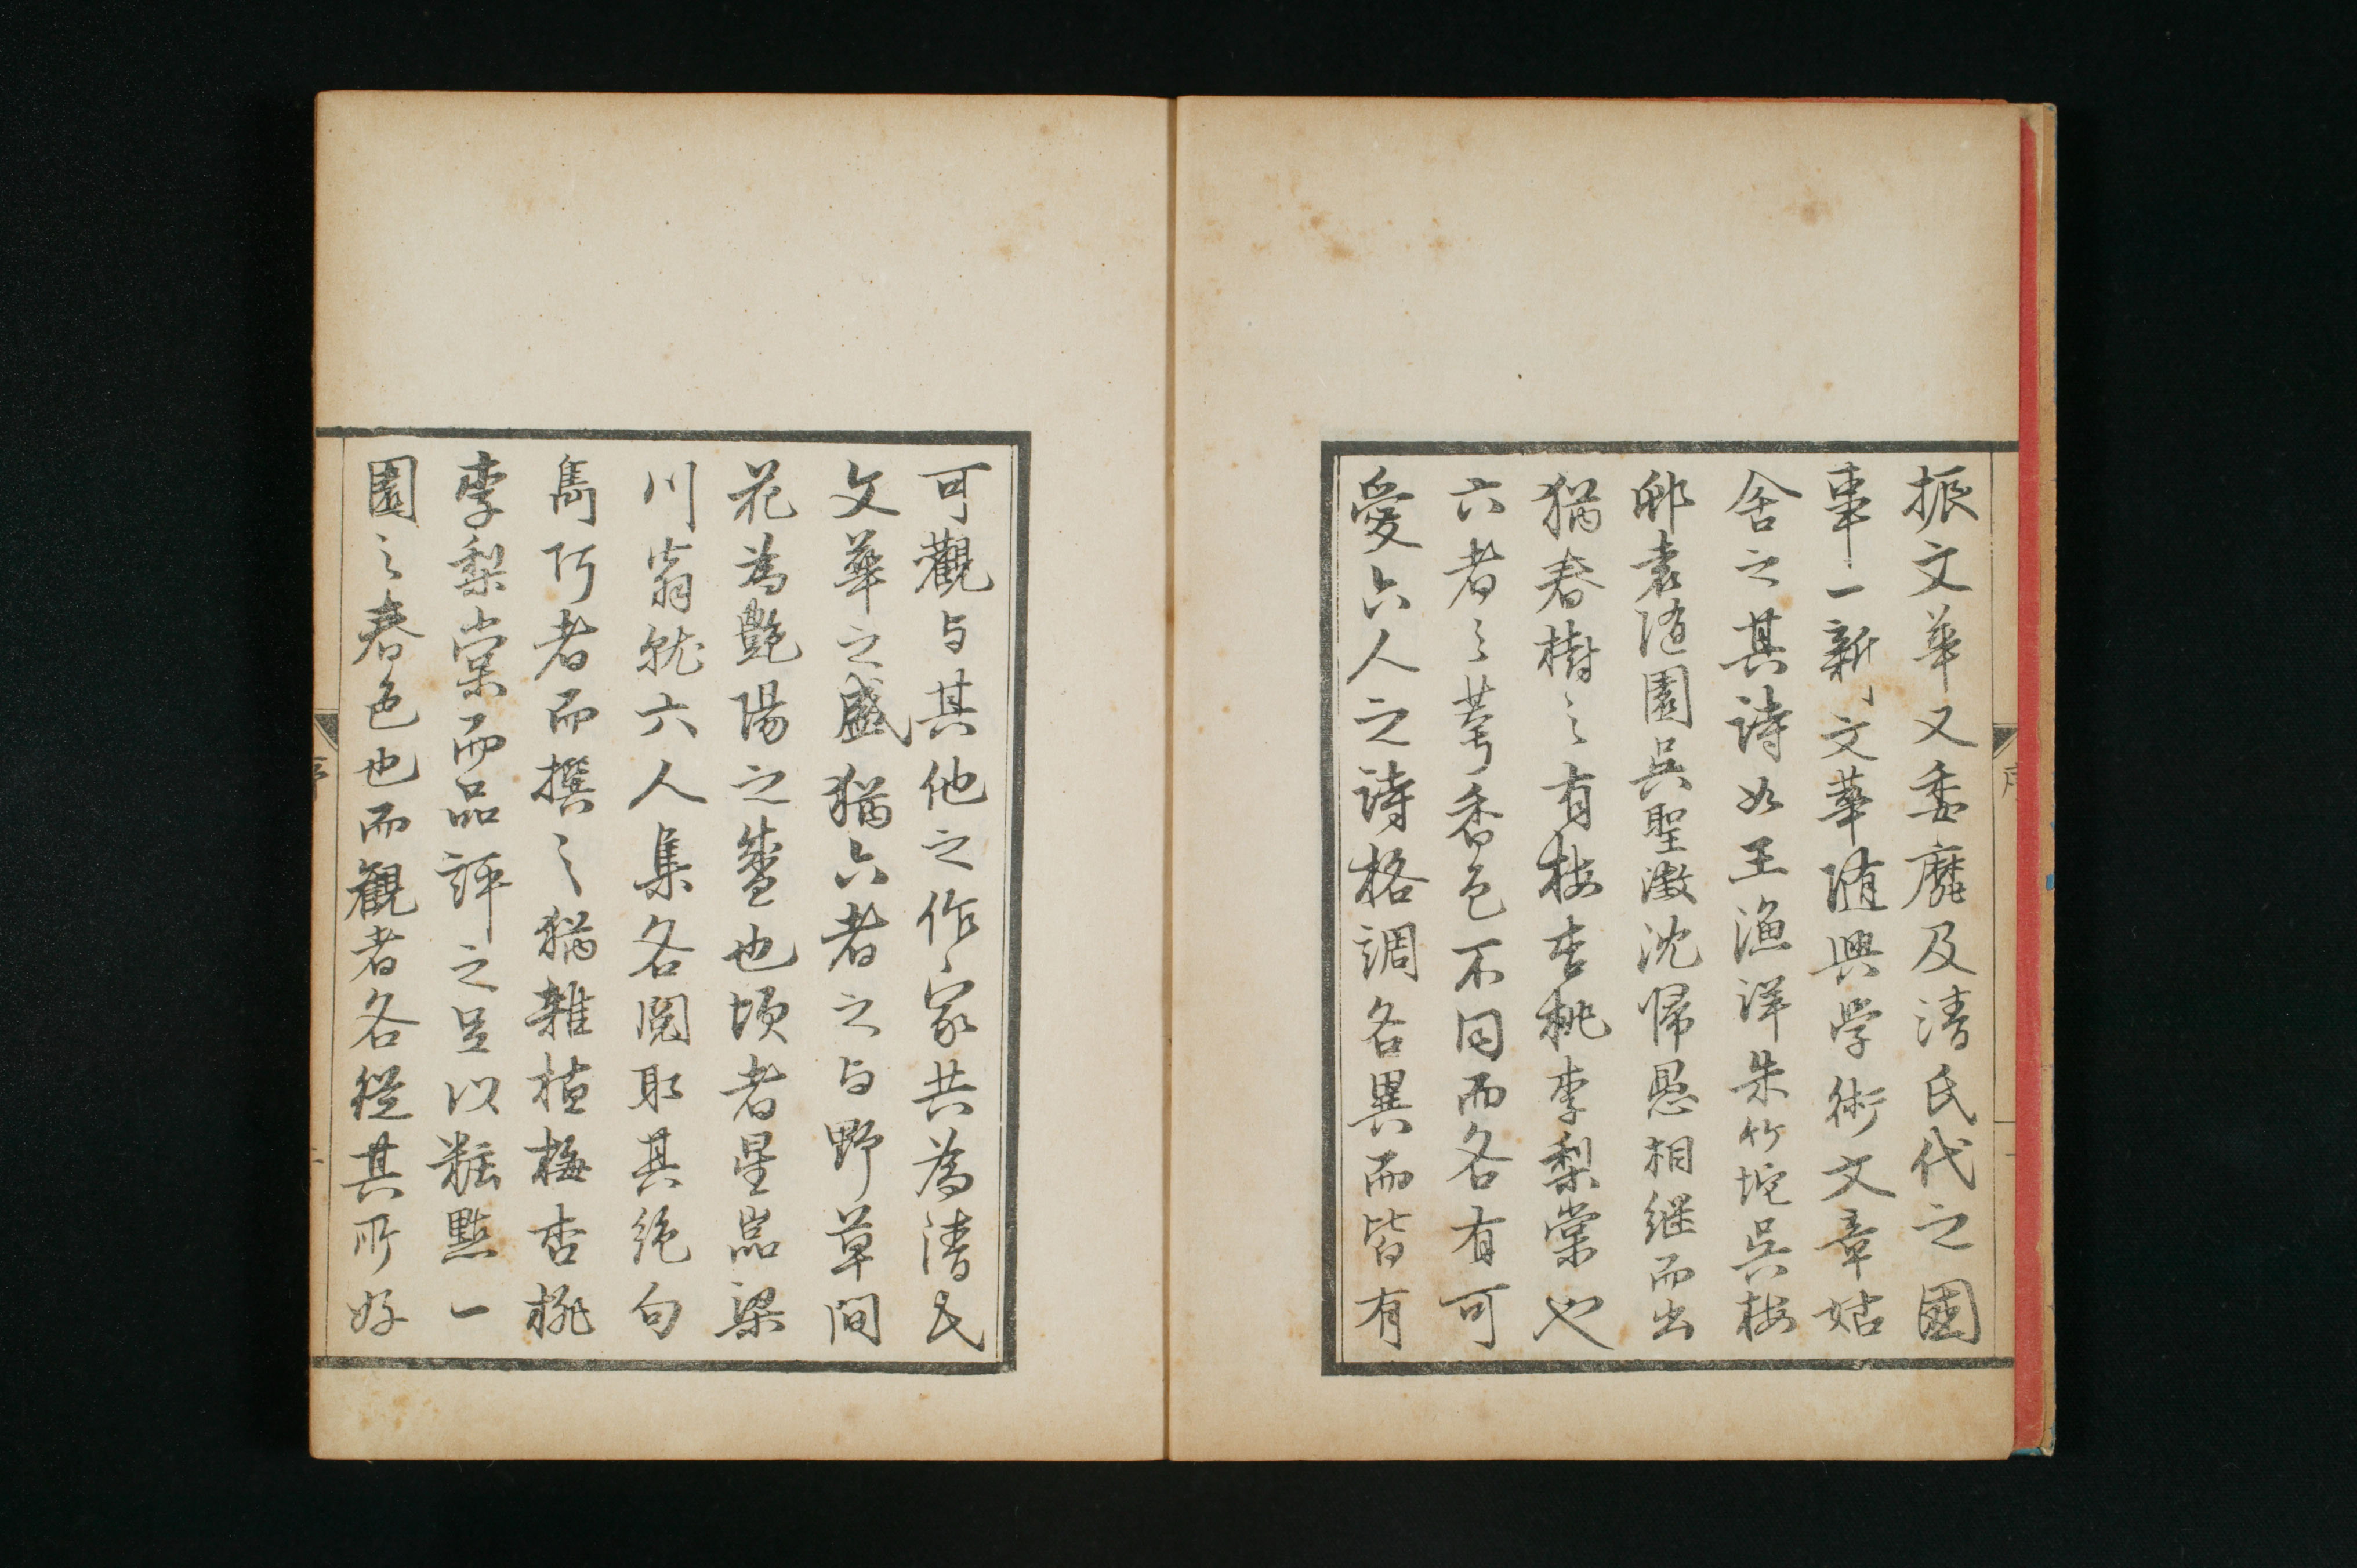 振文華又委靡及清氏代之國
事一新文華随興学術文章姑
舍之其詩如王漁洋朱竹垞吳梅
邨袁随園吳聖澂沈帰愚相継而出
猶春樹之有梅杏桃李梨棠也
六者之萼香色不同而各有可
愛六人之詩格調各異而皆有
可觀与其他之作家共為清氏
文華之盛猶六者之与野草間
花為艶陽之盛也頃者星嵓梁
川翁就六人集各閲取其絶句
雋阿者而撰之猶雜植梅杏桃
李梨棠而品評之足以粧點一
園之春色也而觀者各從其所好
序